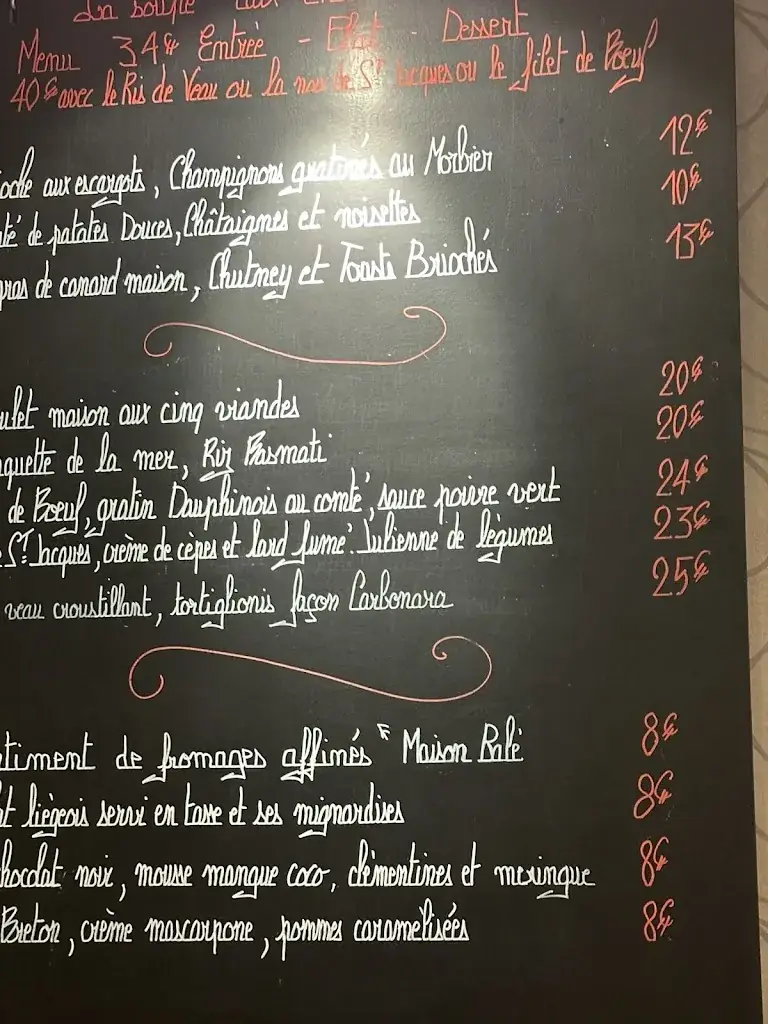 La soupe aux
Menu 34€ Entrée - Plat - Dessert
40€ avec le Ris de Veau ou la noix de St Jacques ou le filet de Boeuf
oche aux escargots, Champignons gratinés au Morbier 12€
té de patates Douces, Châtaignes et noisettes 10€
gras de canard maison, Chutney et Toasts Briochés 13€
ulet maison aux cinq viandes 20€
quette de la mer, Riz Basmati 20€
de Boeuf, gratin Dauphinois au comté, sauce poivre vert 24€
St Jacques, crème de cèpes et lard fumé. Julienne de légumes 23€
veau croustillant, tortiglionis façon Carbonara 25€
timent de fromages affinés " Maison 8€
t liègeois servi en tasse et ses mignardises 8€
hocolat noir, mousse mangue coco, clémentines et meringue 8€
Breton, crème mascarpone, pommes caramelisées 8€